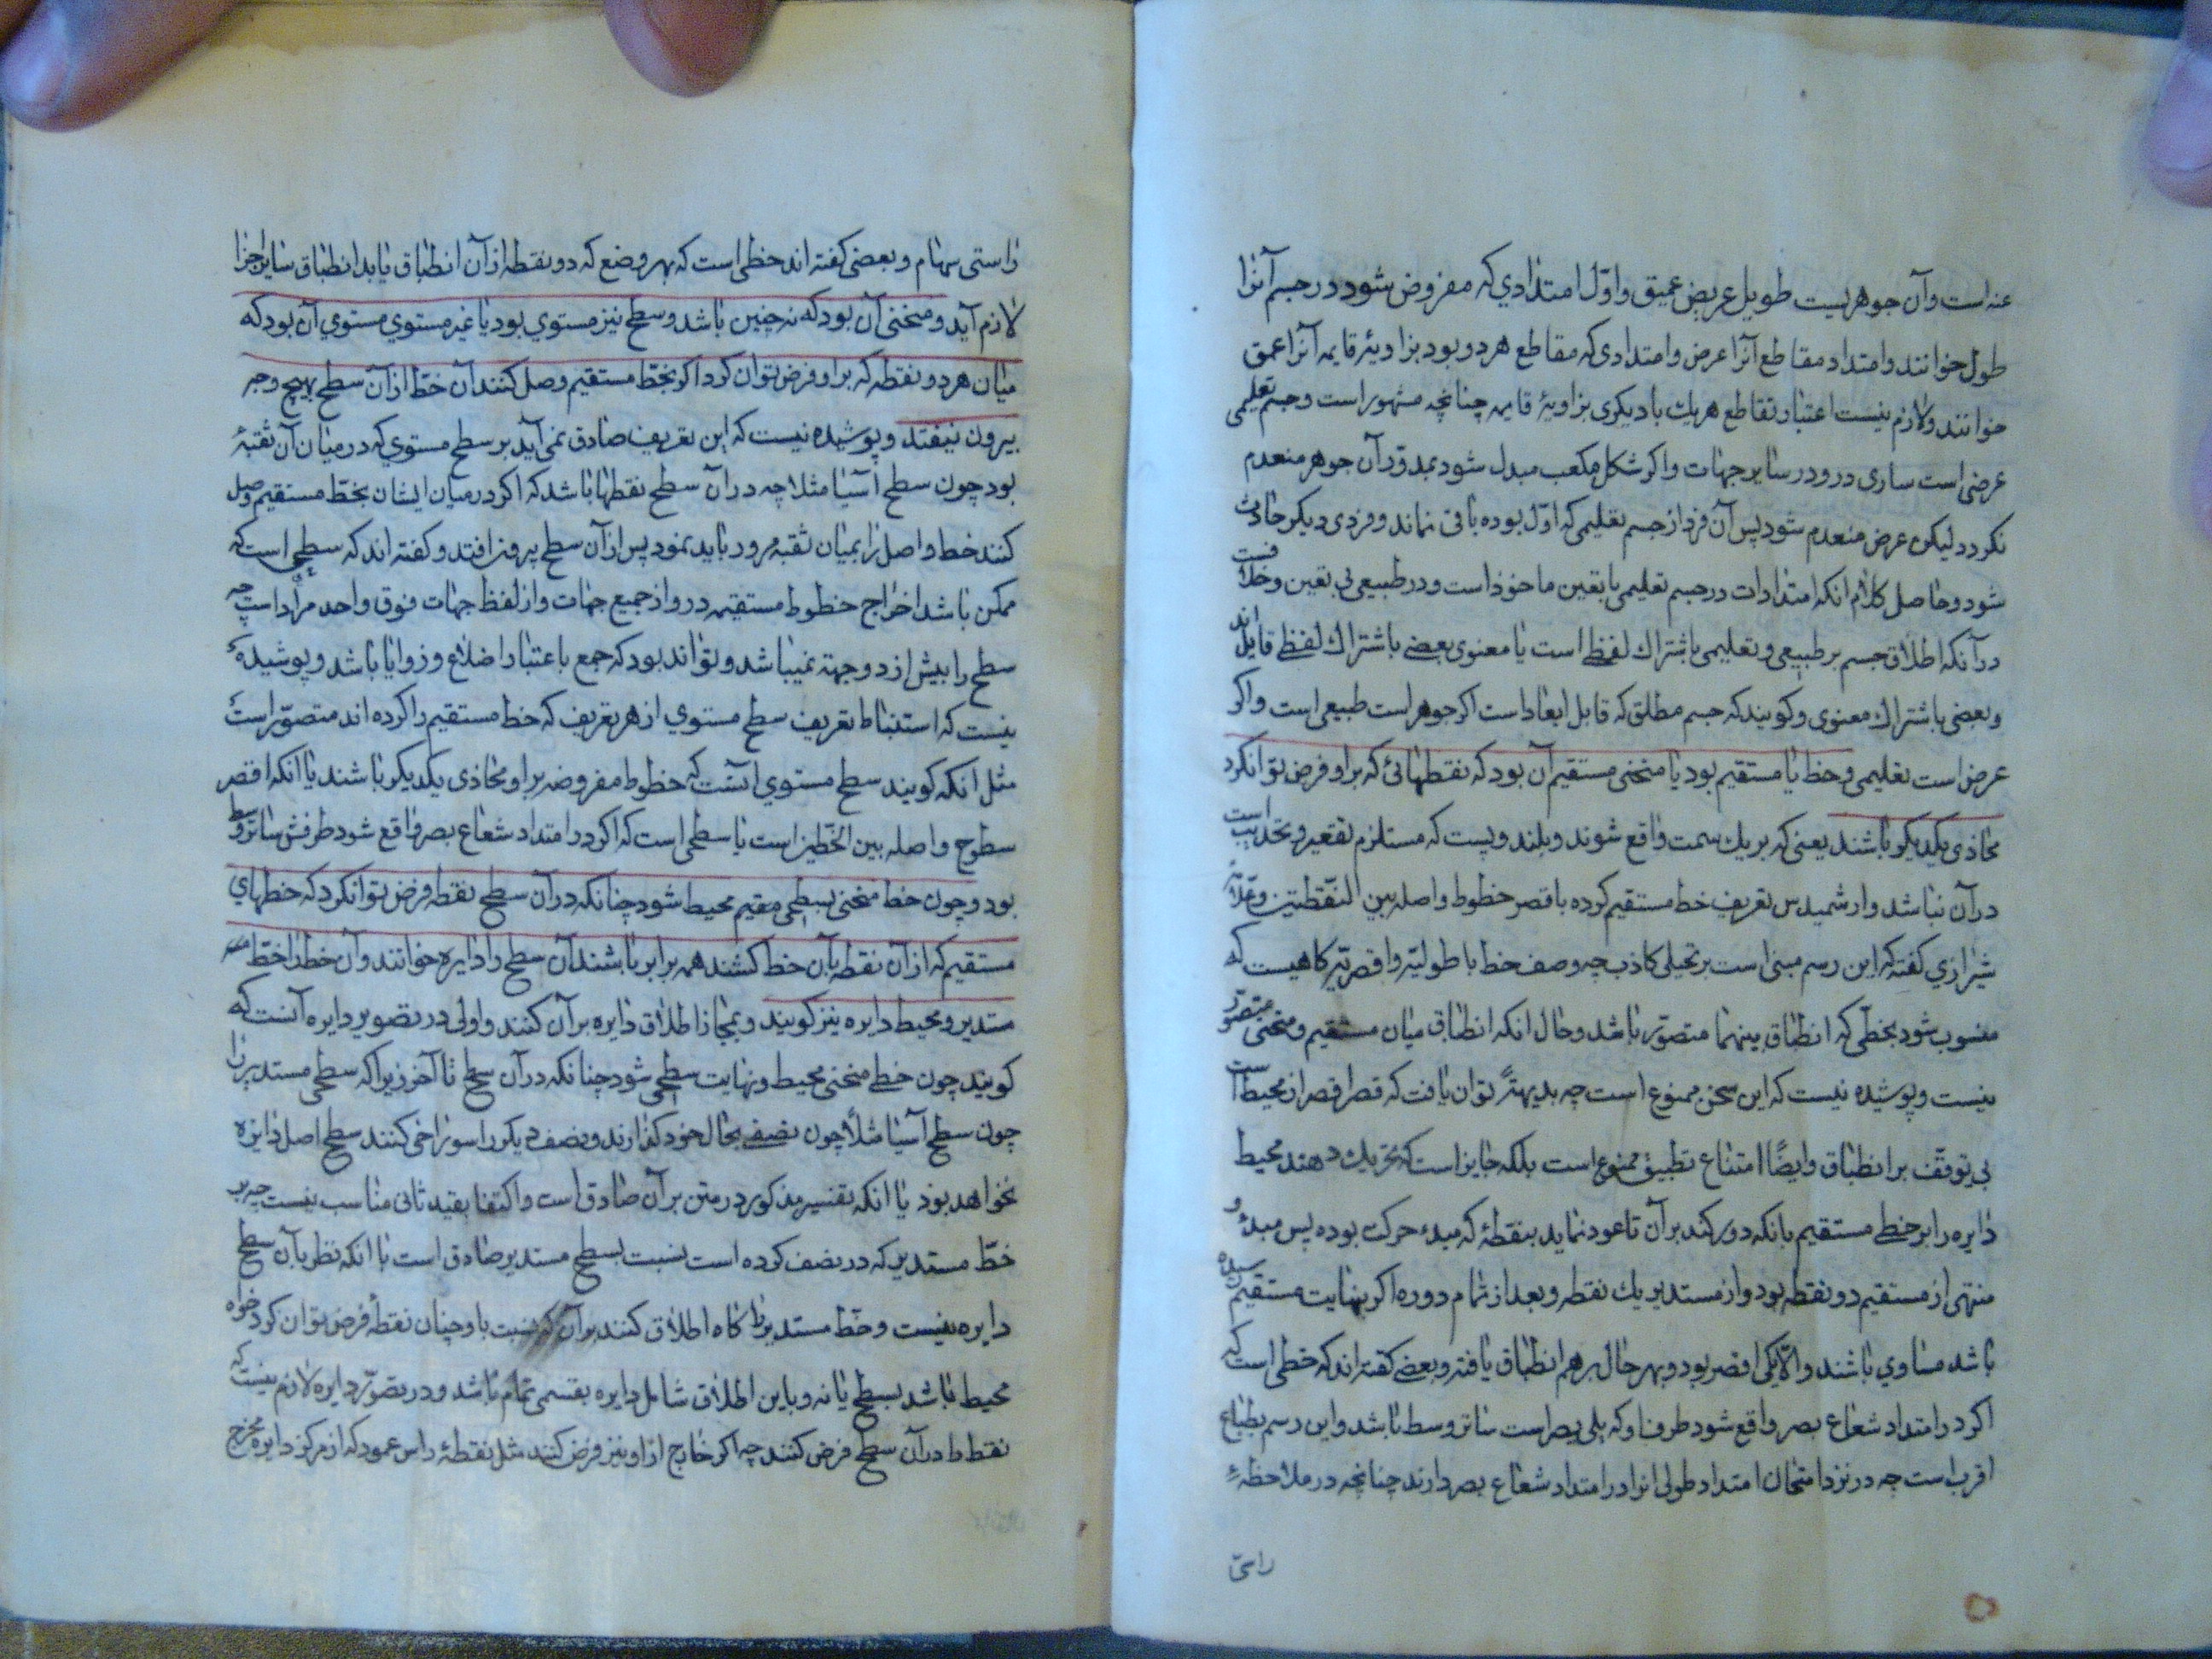 عنه است وآن جوهریست طویل عریض عمیق واول امتدادی که مفروض شود در جسم آنرا
طول خوانند وامتداد مقاطع آنرا عرض وامتدادی که مقاطع هر دو بود بزاویهٔ قایمه آنرا عمق
خوانند ولازم نیست اعتبار تقاطع هریك با دیکری بزاویهٔ قایمه چنانچه مشهور است وجسم تعلیمی
عرضی است ساری در و در سایر جهات واکر شکل مکعب مبدل شود بمدور آن جوهر منعدم
نکردد لیکن عرض منعدم شود پس آن فرد از جسم تعلیمی که اول بوده باقی نماند وفردی دیکر حادث
شود وحاصل کلام انکه امتدادات در جسم تعلیمی با تعین ماخوذ است ودر طبیعی بی تعین وخلاف است
در آنکه اطلاق جسم بر طبیعی وتعلیمی باشتراك لفظی است یا معنوی بعضی باشتراك لفظی قایل اند
وبعضی باشتراك معنوی وکویند که جسم مطلق که قابل ابعاد است اکر جوهر است طبیعی است واکر
عرض است تعلیمی وخط یا مستقیم بود یا منحنی مستقیم آن بود که نقطهائی که براو فرض توانکرد
محاذی یکدیکر باشند یعنی که بر یك سمت واقع شوند وبلند وپست که مستلزم تقعیر وتحدیب است
در آن نباشد وارشمیدس تعریف خط مستقیم کرده باقصر خطوط واصله بین النقطتین وعلامهٔ
شیرازی کفته که این رسم مبنی است بر تخیلی کاذب چه وصف خط باطولیة واقصریة کاهیست که
منسوب شود بخطی که انطباق بینهما متصور باشد وحال انکه انطباق میان مستقیم ومنحنی متصور
نیست وپوشیده نیست که این سخن ممنوع است چه بدیهةً توان یافت که قطر اقصر از محیط است
بی توقف بر انطباق وایضًا امتناع تطبیق ممنوع است بلکه جایز است که تحریك دهند محیط
دایره را بر خطی مستقیم بانکه دور کند بر آن تا عود نماید بنقطهٔ که مبدء حرکت بوده پس مبدء و
منتهی از مستقیم دو نقطه بود واز مستدیر یك نقطه وبعد از تمام دوره اکر بنهایت مستقیم رسیده
باشد مساوی باشند والا یکی اقصر بود وبهر حال بر هم انطباق یافته وبعضی کفته اند که خطی است که
اکر در امتداد شعاع بصر واقع شود طرف او که یلی بصر است ساتر وسط باشد واین رسم بطباع
اقرب است چه در نزد امتحان امتداد طولی انرا در امتداد شعاع بصر دارند چنانچه در ملاحظهٔ
راستی
راستی سهام وبعضی کفته اند خطی است که بهر وضع که دو نقطه از آن انطباق یابد انطباق سایر اجزا
لازم آید ومنحنی آن بود که نه چنین باشد وسطح نیز مستوی بود یا غیر مستوی مستوی آن بود که
میان هر دو نقطه که براو فرض توان کرد اکر بخط مستقیم وصل کنند آن خط از آن سطح بهیچ وجه
بیرون نیفتد وپوشیده نیست که این تعریف صادق نمی آید بر سطح مستوی که در میان آن ثقبهٔ
بود چون سطح آسیا مثلا چه در آن سطح نقطها باشد که اکر در میان ایشان بخط مستقیم وصل
کنند خط واصل را بمیان ثقبه مرور باید نمود پس از آن سطح بیرون افتد وکفته اند که سطحی است که
ممکن باشد اخراج خطوط مستقیمه در و از جمیع جهات واز لفظ جهات فوق واحد مراد است چه
سطح را بیش از دو جهة نمیباشد وتواند بود که جمع باعتبار اضلاع وزوایا باشد وپوشیده
نیست که استنباط تعریف سطح مستوی از هر تعریف که خط مستقیم را کرده اند متصور است
مثل انکه کویند سطح مستوی آنست که خطوط مفروضه براو محاذی یکدیکر باشند یا انکه اقصر
سطوح واصله بین الخطین است یا سطحی است که اکر در امتداد شعاع بصر واقع شود طرفش ساتر وسط
بود وچون خط منحنی بسطحی مقیم محیط شود چنانکه در آن سطح نقطه فرض توانکرد که خطهای
مستقیم که از آن نقطه بآن خط کشند همه برابر باشند آن سطح را دایره خوانند وآن خط را خط
مستدیر ومحیط دایره نیز کویند وبمجاز اطلاق دایره بر آن کنند واولی در تصویر دایره آنست که
کویند چون خطی منحنی محیط ونهایت سطحی شود چنانکه در آن سطح تا آخر زیرا که سطحی مستدیر را
چون سطح آسیا مثلًا چون نصفی بحال خود کذارند ونصف دیکر را سوراخی کنند سطح اصل دایره
نخواهد بود یا انکه تفسیر مذکور در متن بر آن صادق است واکتفا بقید ثانی مناسب نیست چه بر
خط مستدیر که در نصف کرده است بنسبت بسطح مستدیر صادق است با انکه نظر بآن سطح
دایره نیست وخط مستدیر را کاه اطلاق کنند بر آن که نسبت باو چنان نقطه فرض توان کرد خواه
محیط باشد بسطح یا نه وباین اطلاق شامل دایره بقسمی تمام باشد ودر تصور دایره لازم نیست که
نقطه را در آن سطح فرض کنند چه اکر خارج از او نیز فرض کنند مثل نقطهٔ راس عمود که از مرکز دایره مخرج